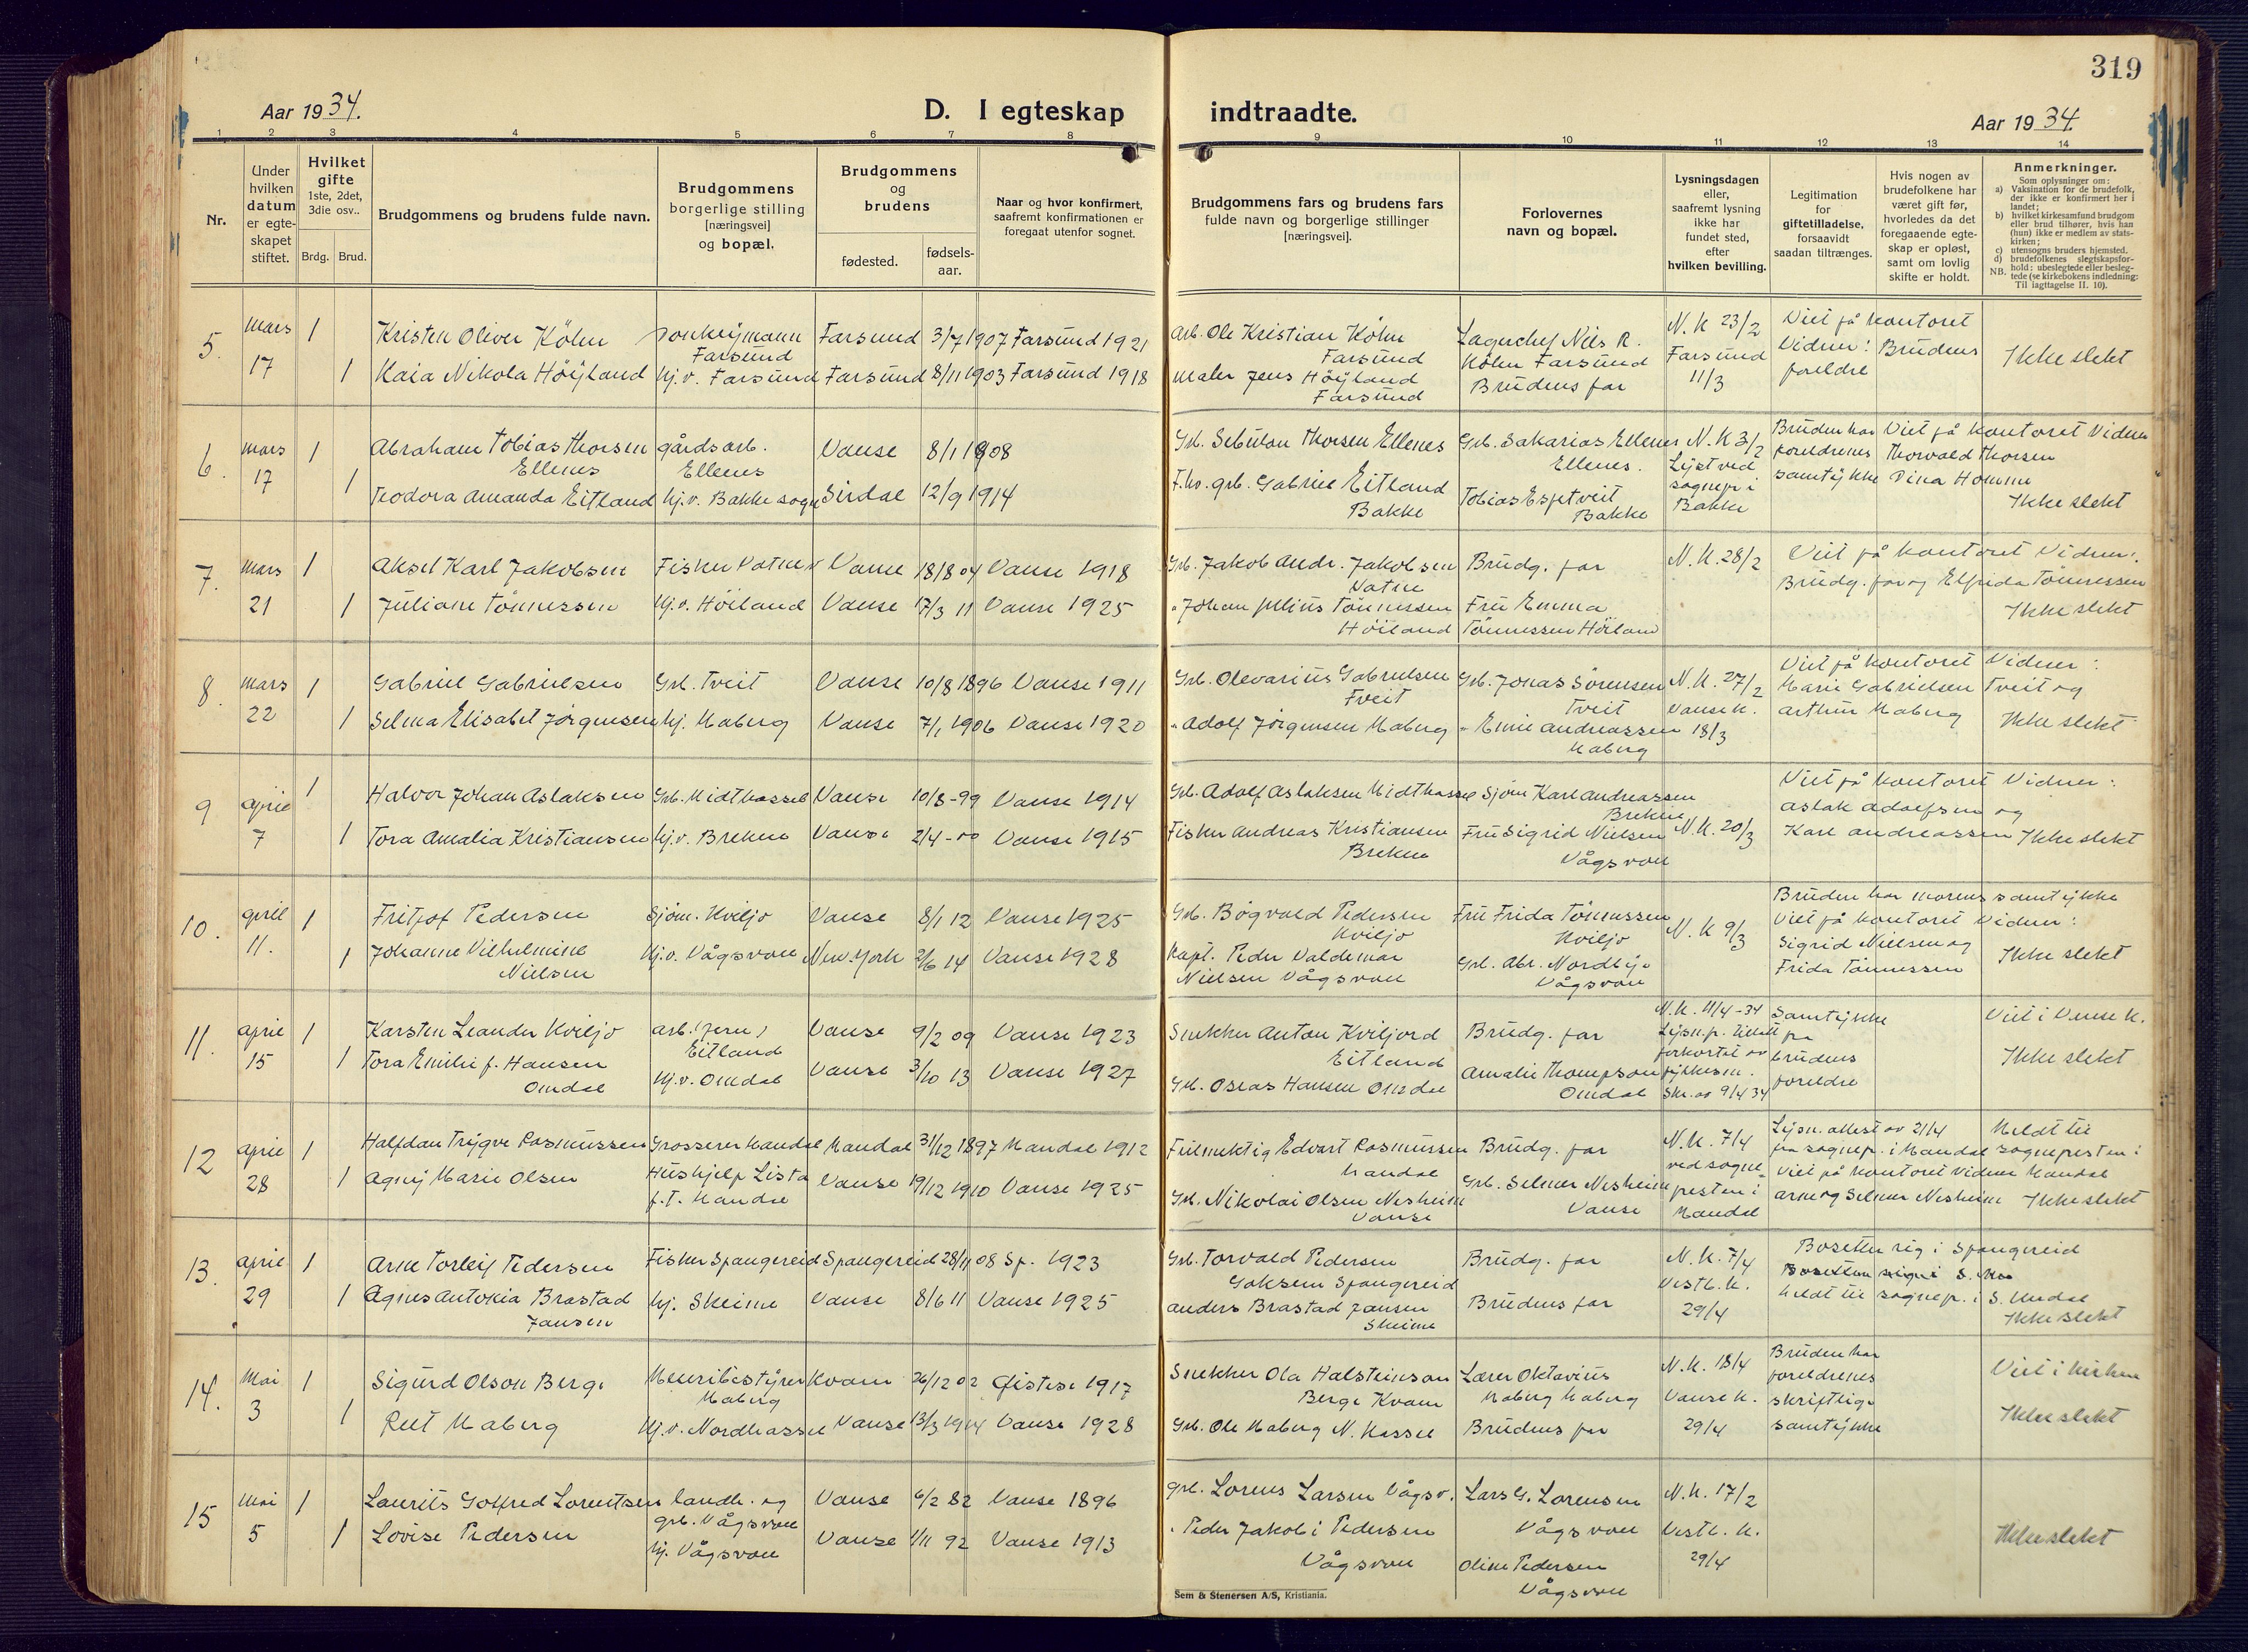 319
Aar 1934.
D. I egteskap
indtraadte.
Aar 1934.
1 2 3 4 5 6 7 8 9 10 11 12 13 14
Nr.
Under
hvilken
datum
er egte-
skapet
stiftet.
Hvilket
gifte
1ste, 2det,
3die osv..
Brdg. Brud.
Brudgommens og brudens fulde navn.
Brudgommens
borgerlige stilling
[næringsvei]
og bopæl.
Brudgommens
og
brudens
fødested.
fødsels-
aar.
Naar og hvor konfirmert,
saafremt konfirmationen er
foregaat utenfor sognet.
Brudgommens fars og brudens fars
fulde navn og borgerlige stillinger
[næringsvei].
Forlovernes
navn og bopæl.
Lysningsdagen
eller,
saafremt lysning
ikke har
fundet sted,
efter
hvilken bevilling.
Legitimation
for
giftetilladelse,
forsaavidt
saadan tiltrænges.
Hvis nogen av
brudefolkene har
været gift før,
hvorledes da det
foregaaende egte-
skap er opløst,
samt om lovlig
skifte er holdt.
Anmerkninger.
Som oplysninger om:
a) Vaksination for de brudefolk,
der ikke er konfirmert her i
landet;
b) hvilket kirkesamfund brudgom
eller brud tilhører, hvis han
(hun) ikke er medlem av stats-
kirken;
c) utensogns bruders hjemsted.
d) brudefolkenes slegtskapsfor-
hold: ubeslegtede eller besleg-
NB. tede (se kirkebokens indledning:
Til iagttagelse II. 10).
5. mars 17 1 Kristen Oliver Köhn Farsund Farsund 3/7 1907 Farsund 1921
1 Kaia Nikola Höyland hj.v. Farsund Farsund 8/11 1903 Farsund 1918
Arb. Ole Kristian Köhn
Farsund
Maler Jens Höyland
Farsund
Lagerchef Nils R.
Köhn Farsund
Brudens far
N.K 23/2
Farsund
11/3
Viet på kontoret
Vidner: Brudens
foreldre
Ikke slekt
6. mars 17 1 Abraham Tobias Thorsen
Ellenes
gårdsarb.
Ellenes
Vanse 8/1 1908
1 Teodora Amanda Eitland hj.v. Bakke sogn Sirdal 12/9 1914
Grb. Sebulon Thorsen Ellenes
F.hv. grb. Gabriel Eitland
Bakke
Grb. Sakarias Ellenes
Ellenes.
Tobias Espetveit
Bakke
N.K 3/2
Lyst ved
sognepr i
Bakke
Bruden har
foreldrenes
samtykke
Viet på kontoret Vidner
Thorvald Thorsen
Dina Homme
Ikke slekt
7. mars 21 1 Aksel Karl Jakobsen Fisker Vatne Vanse 18/8 04 Vanse 1918
1 Juliane Tönnessen hj.v. Höiland Vanse 17/3 11 Vanse 1925
Grb. Jakob Andr. Jakobsen
Vatne
" Johan Julius Tönnessen
Höiland
Brudg. far
Fru Emma
Tönnessen Höiland
N.K. 28/2
Viet på kontoret Vidner:
Brudg. far og Elfrida Tönnessen
Ikke slekt
8. mars 22 1 Gabriel Gabrielsen Grb. Tveit Vanse 10/8 1896 Vanse 1911
1 Selma Elisabet Jörgensen hj. Maberg Vanse 7/1 1906 Vanse 1920
Grb. Olevarius Gabrielsen
Tveit
" Adolf Jörgensen Maberg
Grb. Jonas Sörensen
Tveit
" Emil Andreassen
Maberg
N.K. 27/2
Vanse K.
18/3
Viet på kontoret Vidner:
Marie Gabrielsen Tveit og
Arthur Maberg
Ikke slekt
9 april 7 1 Halvor Johan Aslaksen Grb. Midthassel Vanse 10/8-99 Vanse 1914
1 Tora Amalia Kristiansen hj.v. Brekne Vanse 2/4-00 Vanse 1915
Grb. Adolf Aslaksen Midthassel
Fisker Andreas Kristiansen
Brekne
Sjöm Karl Andreassen
Brekne
Fru Sigrid Nielsen
Vågsvoll
N.K. 20/3
Viet på kontoret Vidner:
Aslak Adolfsen og
Karl Andreassen
Ikke slekt
10. april 11. 1 Fritjof Pedersen Sjöm. Kviljo Vanse 8/1 12 Vanse 1925
1 Johanne Vilhelmine
Nielsen
hj.v. Vågsvoll New York 2/6 14 Vanse 1928
Grb. Bögvald Pedersen
Kviljo
Kapt. Peder Valdemar
Nielsen Vågsvoll
Fru Frida Tönnessen
Kviljo
Grb. Abr. Nordby
Vågsvoll
N.K 9/3
Bruden har morens samtykke
Viet på kontoret Vidner:
Sigrid Nielsen og
Frida Tönnessen
Ikke slekt
11. april 15 1 Karsten Leander Kviljo arb. (jern)
Eitland
Vanse 9/2 09 Vanse 1923
1 Tora Emilie f. Hansen
Omdal
hj.v. Omdal Vanse 3/10 13 Vanse 1927
Snekker Anton Kviljord
Eitland
Grb. Oseas Hansen Omdal
Brudg. far
Amalie Thompson
Omdal
N.K. 11/4-34
forkortet av
fylkesm.
Skr. av 9/4 34
Samtykke
fra
brudens
foreldre
Viet i Vanse K.
Ikke slekt
12 april 28 1 Halfdan Trygve Rasmussen Grosserer Mandal Mandal 31/12 1897 Mandal 1912
1 Agny Marie Olsen Hushjelp Lista
f.T. Mandal
Vanse 19/12 1910 Vanse 1925
Fullmektig Edvart Rasmussen
Mandal
Grb. Nikolai Olsen Nesheim
Vanse
Brudg. far
Grb. Selmer Nesheim
Vanse
N.K. 7/4
ved sogne-
presten i
Mandal
Lysn. attest av 21/4
fra sognepr. i Mandal
Viet på kontoret Vidner
Arne og Selmer Nesheim
Meldt til
sognepresten i
Mandal
Ikke slekt
13. april 29 1 Arne Torleif Pedersen Fisker Spangereid Spangereid 28/11 08 Sp. 1923
1 Agnes Antokia Brastad
Jansen
hj. Skeime Vanse 8/6 11 Vanse 1925
Grb. Torvald Pedersen
Goksem Spangereid
Anders Brastad Jansen
Skeime
Brudg. far
Brudens far
N.K. 7/4
Vestb. K.
29/4
Bosetter sig i Spangereid
Meldt til sognepr. i S. Undal
Ikke slekt
14. Mai 3 1 Sigurd Olson Berge Meieribestyrer
Maberg
Kvam 26/12 02 Östese 1917
1 Rut Maberg hj.v. Nordhassel Vanse 13/3 1914 Vanse 1928
Snekker Ola Halsteinson
Berge Kvam
Grb. Ole Maberg N. Hassel
Lærer Oktavius
Maberg Maberg
Brudens far
N.K. 18/4
Vanse K.
29/4
Bruden har
foreldrenes
skriftlige
samtykke
Viet i kirken
Ikke slekt
15 Mai 5 1 Laurits Gotfred Lorentsen landh. og
grb. Vågsvoll
Vanse 6/2 82 Vanse 1896
1 Lovise Pedersen hj. Vågsvoll Vanse 1/11 92 Vanse 1913
grb. Lorens Larsen Vågsv.
" Peder Jakobi Pedersen
Vågsvoll
Lars G. Lorensen
Vågsvoll
Oline Pedersen
Vågsvoll
N.K. 17/2
Vestb. K.
29/4
Ikke slekt
Sem & Stenersen A/S, Kristiania.